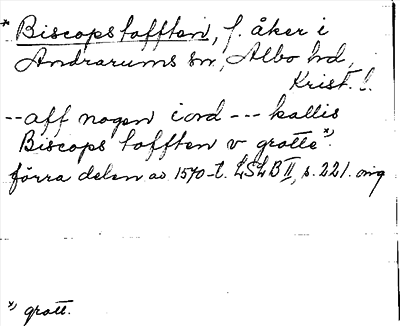 * Biscopstofften, f. åker i
Andrarums sn, Albo hd,
Krist. l.
--aff nogen iord --- kallis
Biscops tofften v grotte x)
förra delen av 1570-t. LSLB II, s. 221. orig
x) grott.